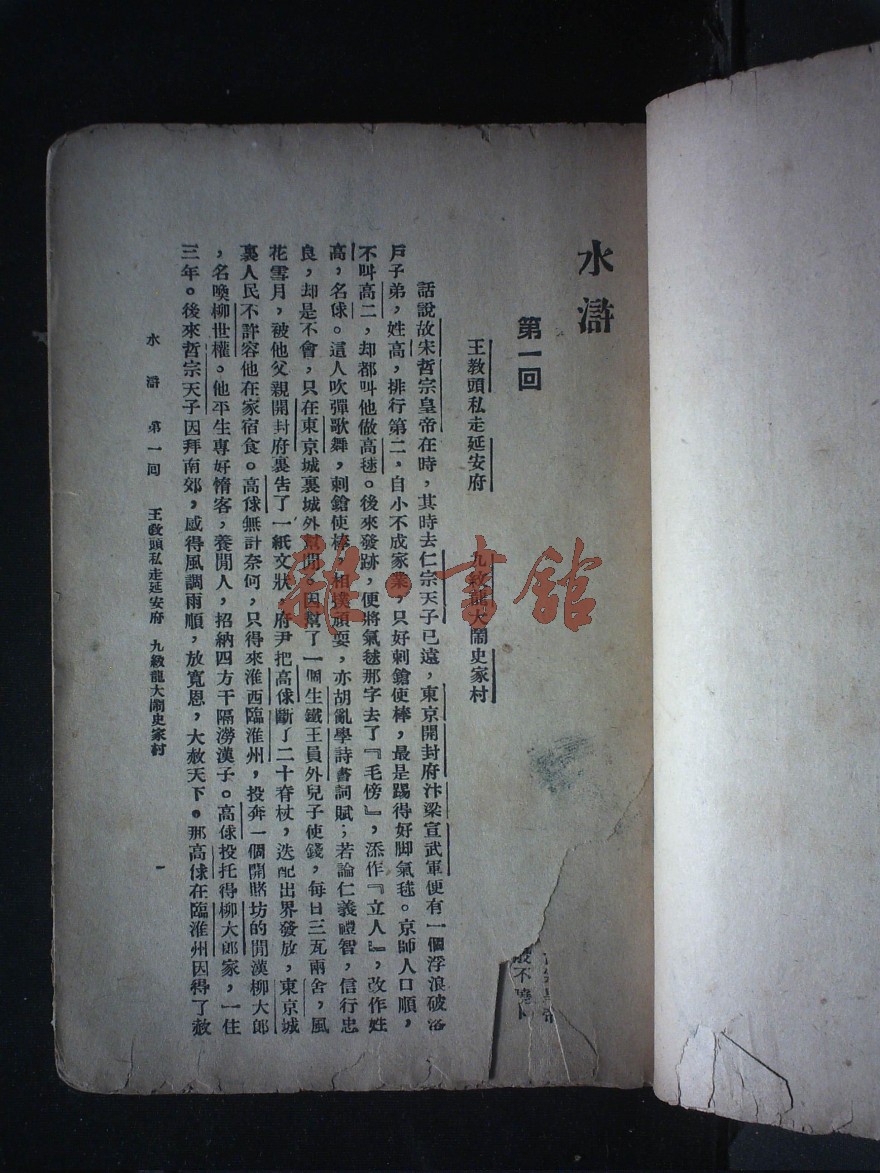 水滸
第一回
王敎頭私走延安府　九紋龍大鬧史家村
話說故宋哲宗皇帝在時，其時去仁宗天子已遠，東京開封府汴梁宣武軍便有一個浮浪破落
戶子弟，姓高，排行第二，自小不成家業，只好刺鎗使棒，最是踢得好脚氣毬。京師人口順，
不叫高二，却都叫他做高毬。後來發跡，便將氣毬那字去了『毛傍』，添作『立人』，改作姓
高，名俅。這人吹彈歌舞，刺鎗使棒，相撲頑耍，亦胡亂學詩書詞賦；若論仁義禮智，信行忠
良，却是不會，只在東京城裏城外幫閒。因幫了一個生鐵王員外兒子使錢，每日三瓦兩舍，風
花雪月，被他父親開封府裏告了一紙文狀，府尹把高俅斷了二十脊杖，迭配出界發放，東京城
裏人民不許容他在家宿食。高俅無計奈何，只得來淮西臨淮州，投奔一個開賭坊的閒漢柳大郎
，名喚柳世權。他平生專好惜客，養閒人，招納四方干隔澇漢子。高俅投托得柳大郎家，一住
三年。後來哲宗天子因拜南郊，感得風調雨順，放寬恩，大赦天下。那高俅在臨淮州因得了赦
水滸　第一回　王敎頭私走延安府　九紋龍大鬧史家村　一
雜·書館